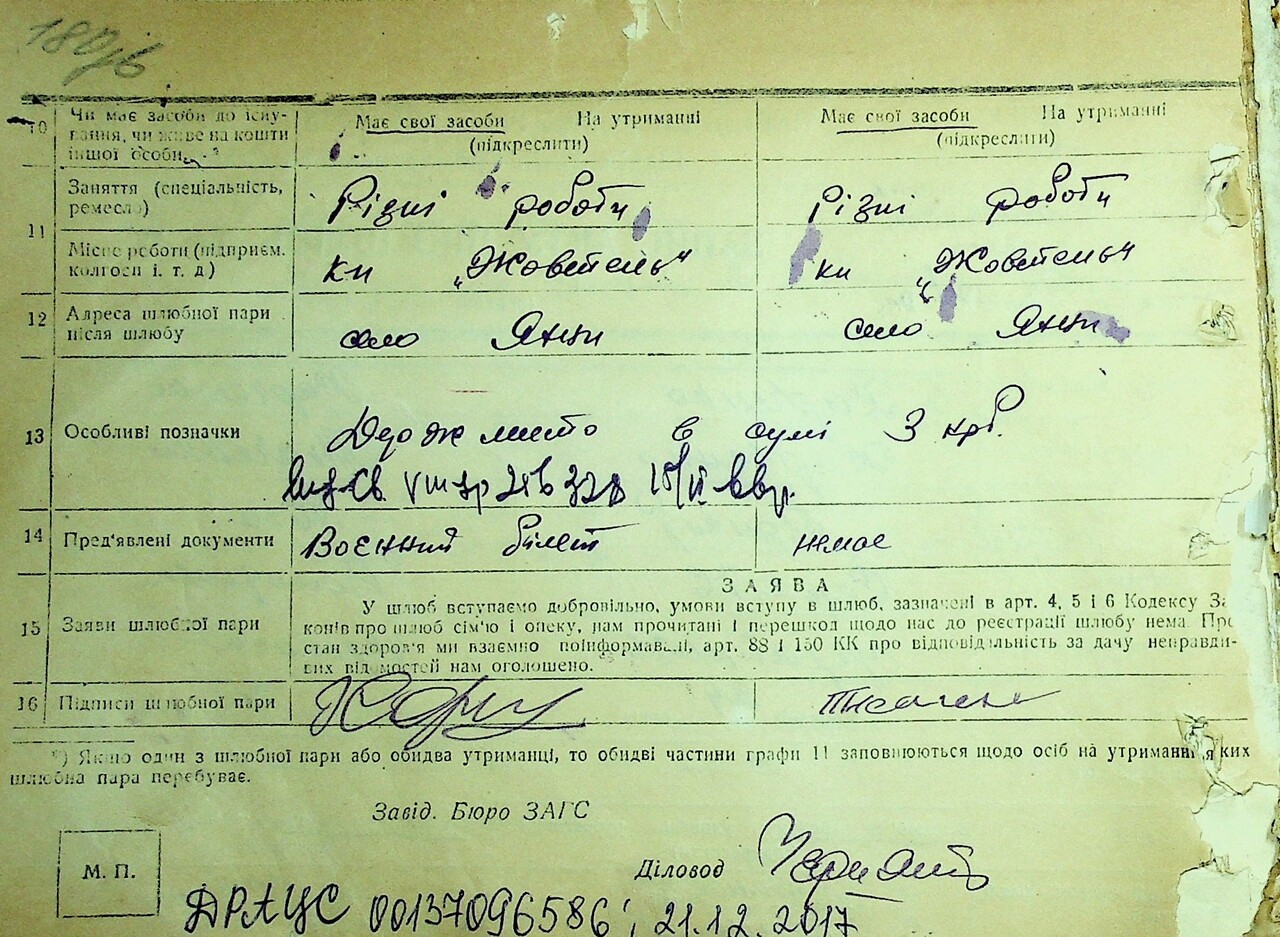 180зв
10 Чи має засоби до існу- Має свої засоби На утриманні Має свої засоби На утриманні
вання, чи живе на кошти (підкреслити) (підкреслити)
іншої особи *
11 Заняття (спеціальність, Різні роботи Різні роботи
ремесло)
Місце роботи (підприєм. кп „Жовтень" кп „Жовтень"
колгосп і. т. д)
12 Адреса шлюбної пари село Янки село Янки
після шлюбу
13 Особливі позначки Держмито в сумі 3 крб.
14 Пред'явлені документи Воєнний білет немає
ЗАЯВА
У шлюб вступаємо добровільно, умови вступу в шлюб, зазначені в арт. 4, 5 і 6 Кодексу За-
15 Заяви шлюбної пари конів про шлюб сім'ю і опеку, нам прочитані і перешкод щодо нас до реєстрації шлюбу нема. Про
стан здоров'я ми взаємно поінформавалі, арт. 88 і 150 КК про відповідальність за дачу неправди-
вих відомостей нам оголошено.
16 Підписи шлюбної пари
*) Якщо один з шлюбної пари або обидва утриманці, то обидві частини графи 11 заповнюються щодо осіб на утриманні яких
шлюбна пара перебуває.
Завід. Бюро ЗАГС
М. П. Діловод
ДРАЦС 00137096586; 21.12.2017